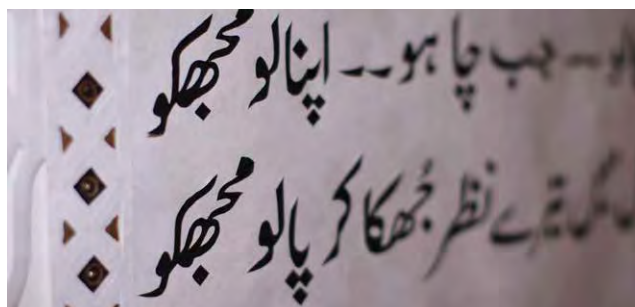 جب چاہو۔۔ اپنا لو مجھکو
تیرے نظر جُھکا کر پا لو مجھکو